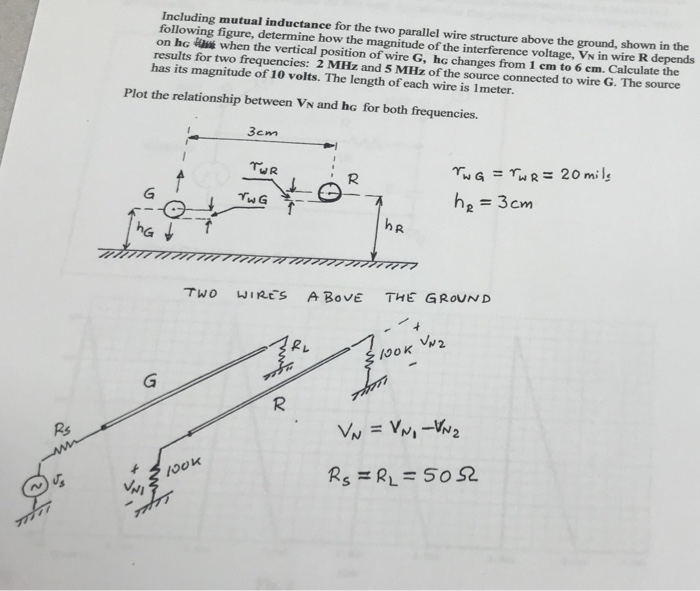 Including mutual inductance for the two parallel wire structure above the ground, shown in the
following figure, determine how the magnitude of the interference voltage, VN in wire R depends
on hG when the vertical position of wire G, hG changes from 1 cm to 6 cm. Calculate the
results for two frequencies: 2 MHz and 5 MHz of the source connected to wire G. The source
has its magnitude of 10 volts. The length of each wire is 1meter.
Plot the relationship between VN and hG for both frequencies.
3cm
rWR
R
G
rWG
hG
hR
rWG = rWR = 20 mils
hR = 3cm
TWO WIRES ABOVE THE GROUND
RL
+
100K
VN2
-
G
R
Rs
+
100K
VN1
-
~
Vs
VN = VN1 - VN2
RS = RL = 50 Ω